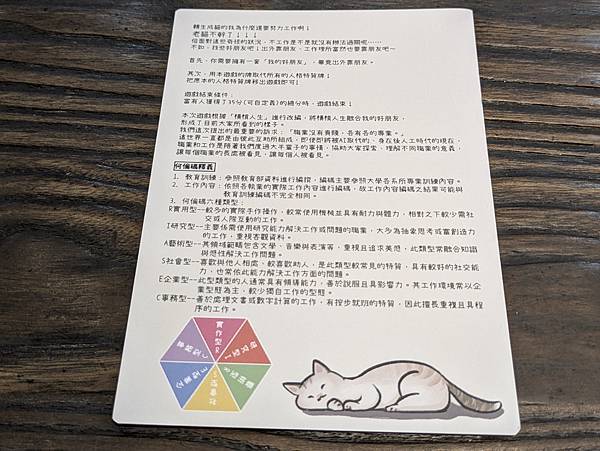 轉生成貓的我為什麼還要努力工作啊！
老貓不幹了！！！！
但面對這些奇怪的狀況，不工作是不是就沒有辦法過關呢⋯⋯
不如，找些好朋友吧！出外靠朋友、工作裡所當然也要靠朋友吧～
首先，你需要擁有一套「我的好朋友」，畢竟出外靠朋友。
其次，用本遊戲的牌取代所有的人格特質牌！
把原本的人格特質牌移出遊戲即可！
遊戲結束條件：
當有人獲得了35分(可自定義)的總分時，遊戲結束！
本次遊戲根據「橫橫人生」進行改編，將橫橫人生融合我的好朋友，
形成了目前大家所看到的樣子。
我們這次提出的最重要的訴求：「職業沒有貴賤，各有各的專業。」
這世界一直都是由彼此互助所組成，即使即將被AI取代的、身在後人工時代的現在，
職業和工作是陪著我們度過大半輩子的事情，協助大家探索、理解不同職業的意義，
讓每個職業的長處被看見，讓每個人被看見。
何倫碼釋義
1. 教育訓練：參照教育部資料進行編撰，編碼主要參照大學各系所專業訓練內容。
2. 工作內容：依照各職業的實際工作內容進行編碼，故工作內容編碼之結果可能與
教育訓練編碼不完全相同。
3. 何倫碼六種類型：
R實用型--較多的實際手作操作，較常使用機械並具有耐力與體力，相對之下較少需社
交或人際互動的工作。
I研究型--主要係需使用研究能力解決工作或問題的職業，大多為抽象思考或富創造力
的工作，重視客觀資料。
A藝術型--其領域範疇包含文學、音樂與表演等，重視且追求美感，此類型常融合知識
與感性解決工作問題。
S社會型--喜歡與他人相處、較喜歡助人，是此類型較常見的特質，具有較好的社交能
力，也常依此能力解決工作方面的問題。
E企業型--此型類型的人通常具有領導能力，善於說服且具影響力。其工作環境常以企
業型態為主，較少獨自工作的型態。
C事務型--善於處理文書或數字計算的工作，有按步就班的特質，因此擅長重複且具程
序的工作。
實作型R
研究型I
藝術型A
社會型S
企業型E
事務型C